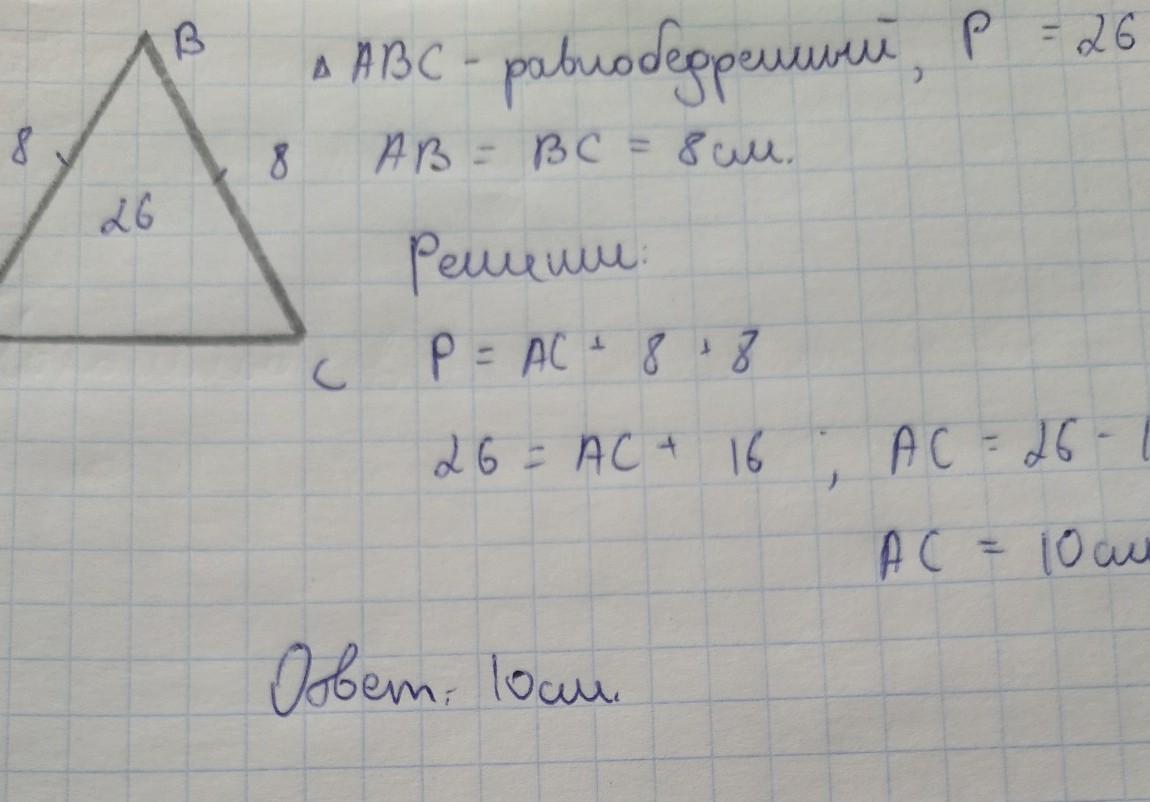 B
△ ABC - равнобедренный, P = 26
8
8
AB = BC = 8см.
26
Решении:
P = AC + 8 + 8
C
26 = AC + 16 ; AC = 26 - 1
AC = 10см
Ответ: 10см.